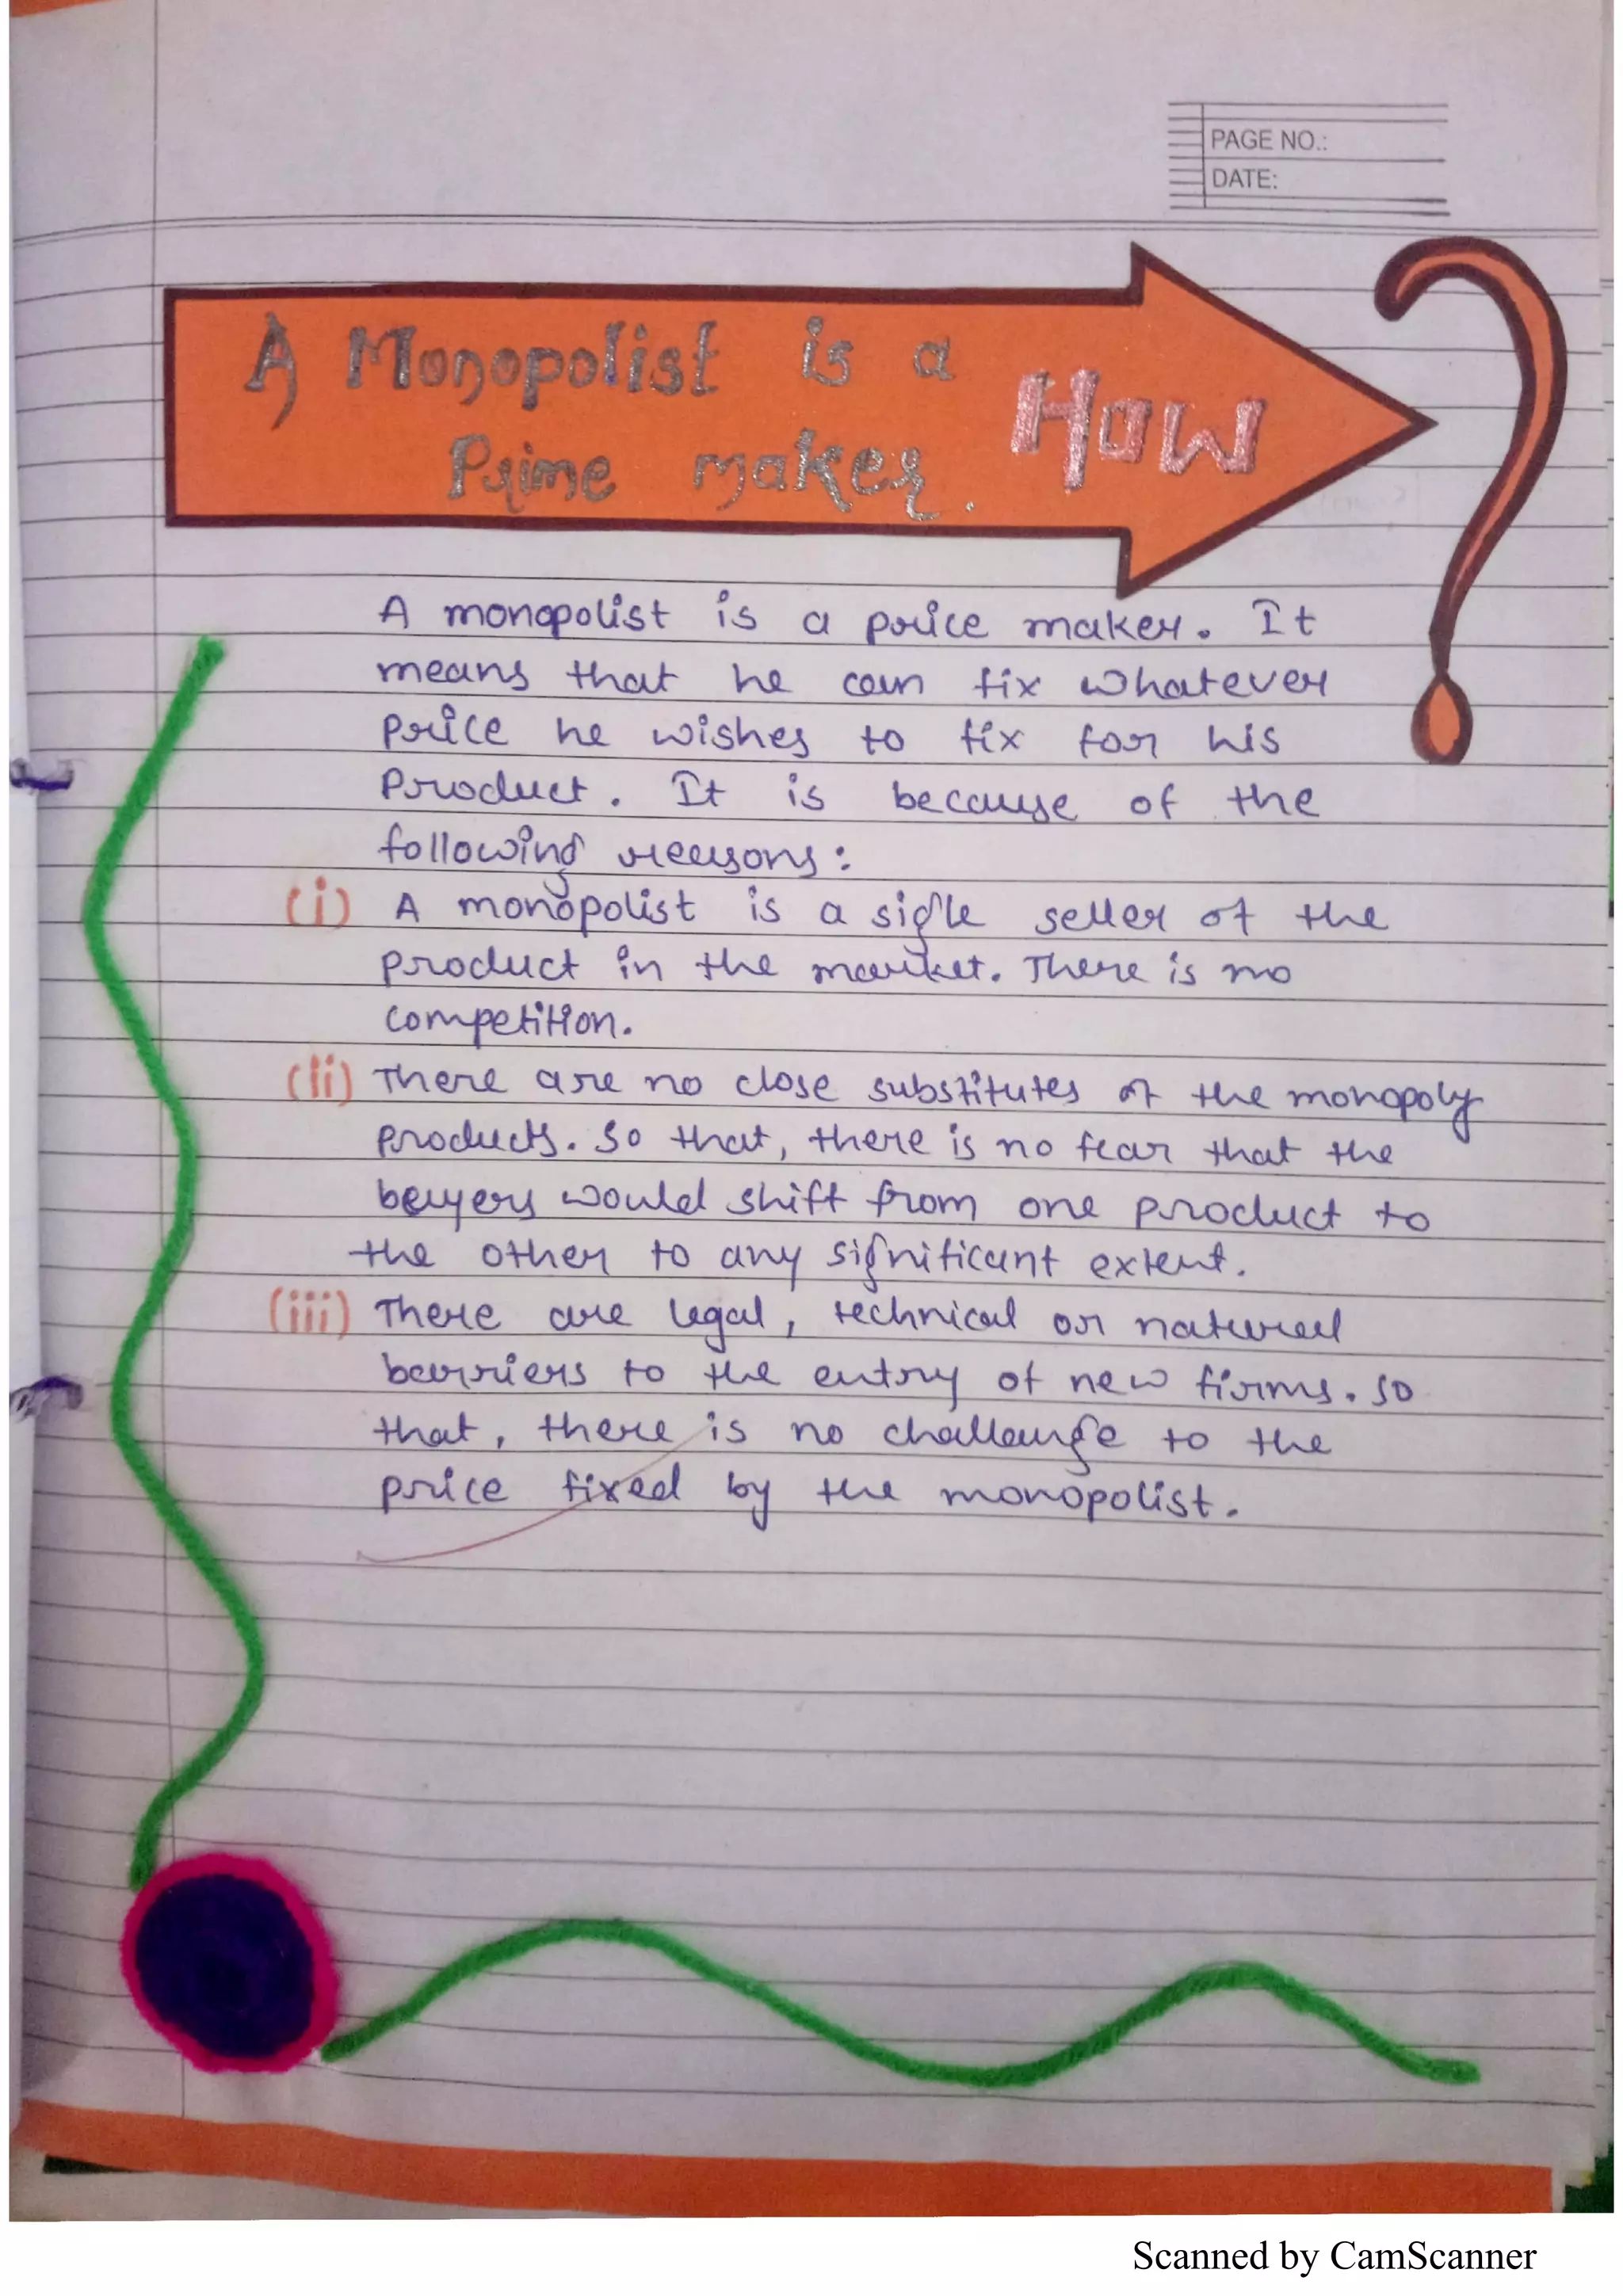 PAGE NO.:
DATE:
A Monopolist is a
Prime maker. How ?
A monopolist is a price maker. It
means that he can fix whatever
price he wishes to fix for his
Product. It is because of the
following reasons:
(i) A monopolist is a sigle seller of the
product in the market. There is no
competition.
(ii) There are no close substitutes of the monopoly
products. So that, there is no fear that the
buyers would shift from one product to
the other to any significant extent.
(iii) There are legal, technical or natural
barriers to the entry of new firms. so
that, there is no challange to the
price fixed by the monopolist.
Scanned by CamScanner